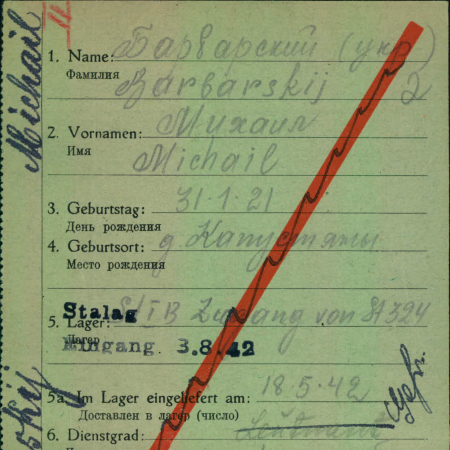 Michail
1. Name: Барварский (укр)
Фамилия
Barbarskij 2
2. Vornamen: Михаил
Имя
Michail
3. Geburtstag: 31.1.21
День рождения
4. Geburtsort: д Капустяны
Место рождения
Stalag
5. Lager: St IB Zugang von St 324
Лагерь
Eingang 3.8.42
5a. Im Lager eingeliefert am: 18.5.42
Доставлен в лагерь (число)
6. Dienstgrad: Leutnant